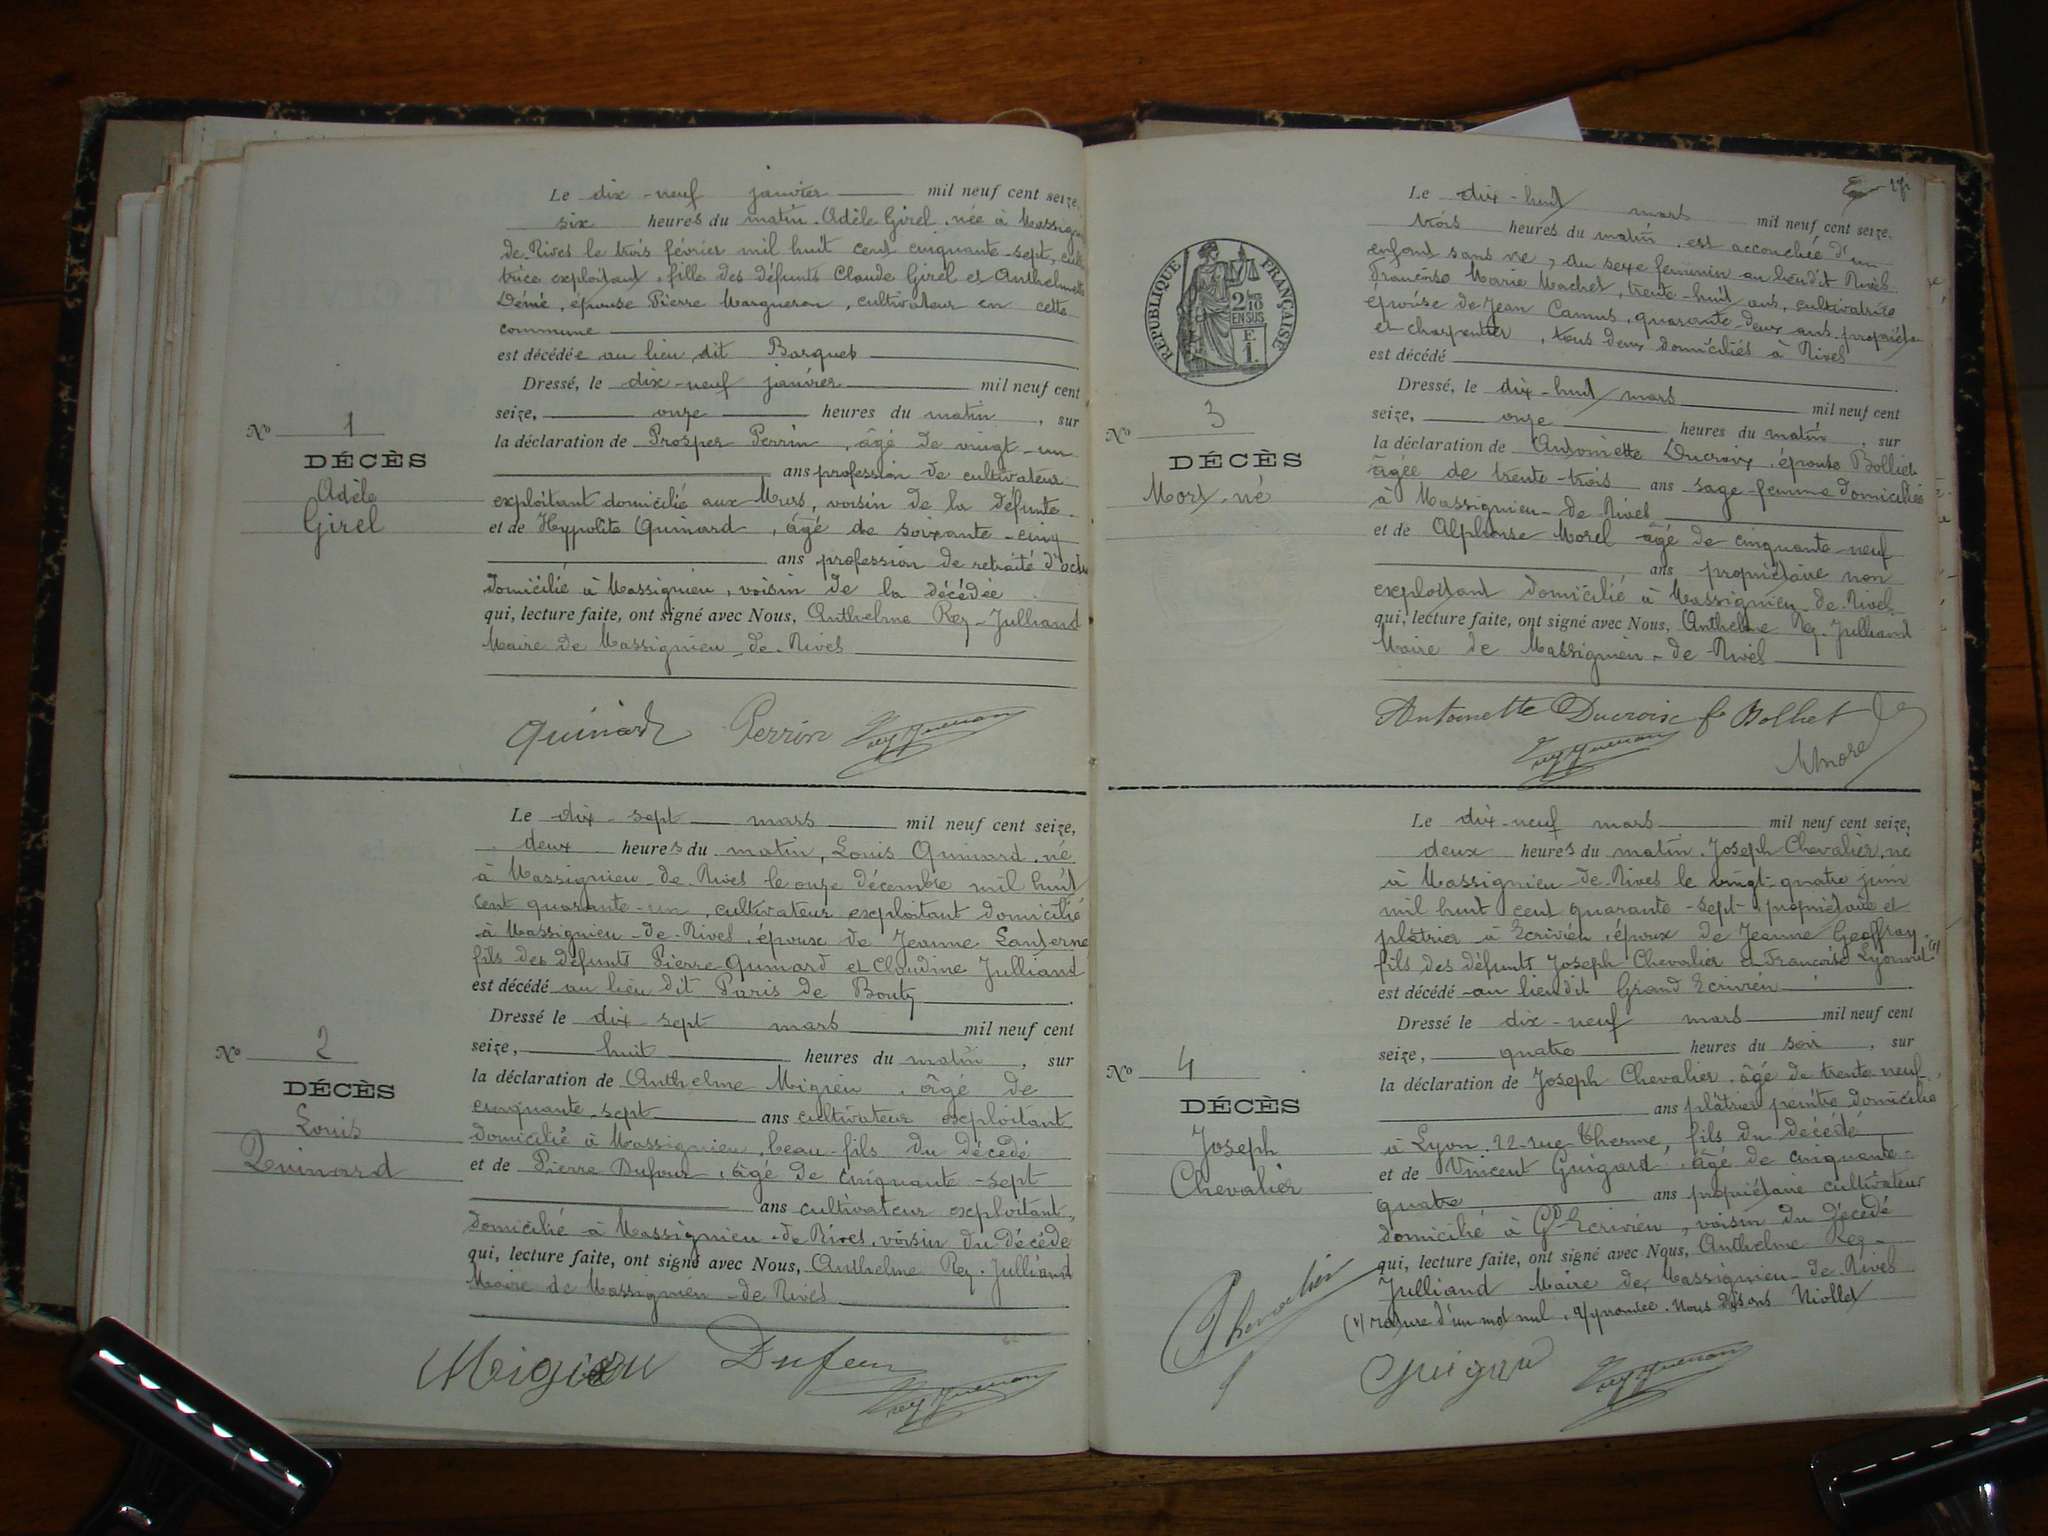 Le dix-neuf janvier mil neuf cent seize,
six heures du matin. Adèle Girel, née à Massignieu
de Rives le trois février mil huit cent cinquante-sept,
trice exploitant, fille des défunts Claude Girel et Anthelmette
épouse Pierre Margueron, cultivateur en cette
commune
est décédée au lieu dit Barquet
Dressé, le dix-neuf janvier mil neuf cent
seize, onze heures du matin, sur
la déclaration de Prosper Perrin, âgé de vingt-un
ans profession de cultivateur
exploitant domicilié aux Murs, voisin de la défunte
et de Hyppolite Quinard, âgé de soixante-cinq
ans profession de retraité d'octroi
domicilié à Massignieu, voisin de la décédée
qui, lecture faite, ont signé avec Nous, Anthelme Rey-Julliand
Maire de Massignieu-de-Rives
No 1
DÉCÈS
Adèle
Girel
Quinard Perrin
Le dix-sept mars mil neuf cent seize,
deux heures du matin, Louis Quinard, né
à Massignieu-de-Rives le onze décembre mil huit
cent quarante-un, cultivateur exploitant domicilié
à Massignieu-de-Rives, époux de Jeanne Lanterne
fils des défunts Pierre Quinard et Claudine Julliand
est décédé au lieu dit Paris de Bouty
Dressé le dix-sept mars mil neuf cent
seize, huit heures du matin, sur
la déclaration de Anthelme Migieu, âgé de
cinquante-sept ans cultivateur exploitant
domicilié à Massignieu, beau-fils du décédé
et de Pierre Dufour, âgé de cinquante-sept
ans cultivateur exploitant,
domicilié à Massignieu-de-Rives, voisin du décédé
qui, lecture faite, ont signé avec Nous, Anthelme Rey-Julliand
Maire de Massignieu-de-Rives
No 2
DÉCÈS
Louis
Quinard
Meigieu Dufour
Le dix-huit mars mil neuf cent seize,
trois heures du matin, est accouchée d'un
enfant sans vie, du sexe féminin au lieu dit Rives
Françoise Marie Machet, trente-huit ans, cultivatrice
épouse de Jean Camus, quarante-deux ans, propriétaire
et charpentier, tous deux domiciliés à Rives
est décédé
Dressé, le dix-huit mars mil neuf cent
seize, onze heures du matin, sur
la déclaration de Antoinette Ducroix, épouse Bolliet
âgée de trente-trois ans sage-femme domiciliée
à Massignieu-de-Rives
et de Alphonse Morel âgé de cinquante-neuf
ans propriétaire non
exploitant domicilié à Massignieu-de-Rives
qui, lecture faite, ont signé avec Nous, Anthelme Rey-Julliand
Maire de Massignieu-de-Rives
RÉPUBLIQUE FRANÇAISE
2/10
EN SUS
F.
1.
No 3
DÉCÈS
Mort-né
Antoinette Ducroix f Bolliet
Amorel
Le dix-neuf mars mil neuf cent seize,
deux heures du matin, Joseph Chevalier, né
à Massignieu-de-Rives le vingt-quatre juin
mil huit cent quarante-sept, propriétaire et
plâtrier à Ecrivieu, époux de Jeanne Geoffray
fils des défunts Joseph Chevalier et Françoise Lyonnet (1)
est décédé au lieu dit Grand Ecrivieu
Dressé le dix-neuf mars mil neuf cent
seize, quatre heures du soir, sur
la déclaration de Joseph Chevalier, âgé de trente-neuf
ans plâtrier peintre domicilié
à Lyon, 22 rue Therme, fils du décédé
et de Vincent Guigard, âgé de cinquante-
quatre ans propriétaire cultivateur
domicilié à Gd-Ecrivieu, voisin du décédé
qui, lecture faite, ont signé avec Nous, Anthelme Rey-
Julliand Maire de Massignieu-de-Rives
(1) rature d'un mot nul, approuvée. Nous disons Niollet
No 4
DÉCÈS
Joseph
Chevalier
Chevalier
Guigard